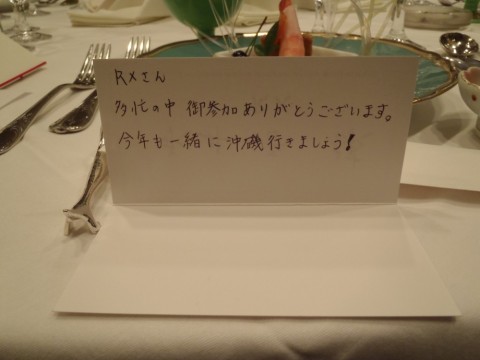 RXさん
多忙の中 御参加ありがとうございます。
今年も一緒に沖磯行きましょう!